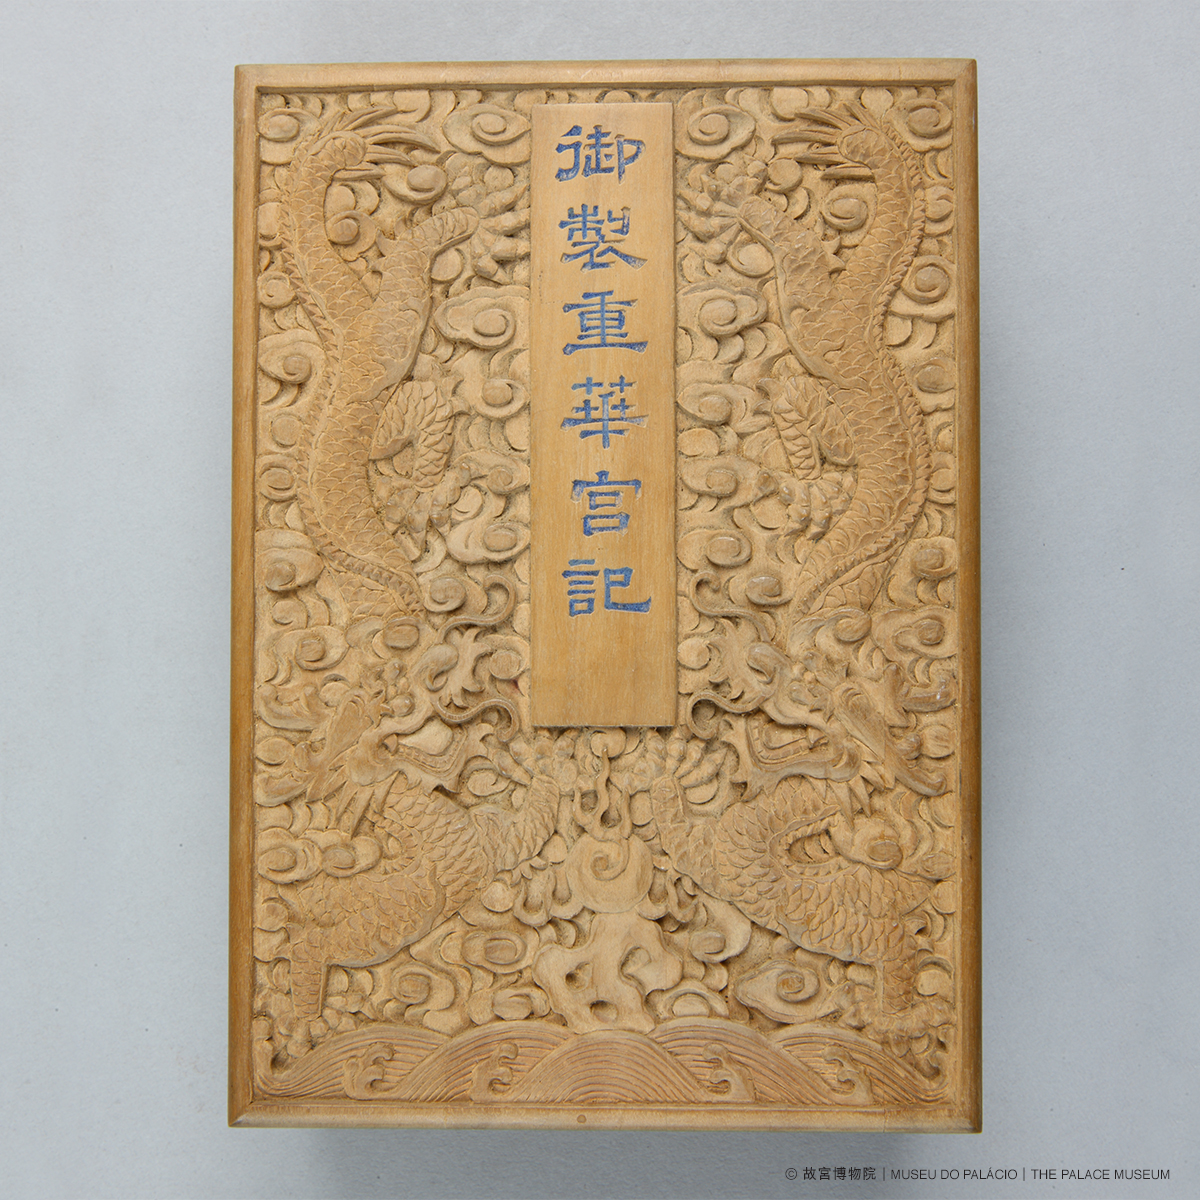 御製重華宮記
© 故宮博物院 | MUSEU DO PALÁCIO | THE PALACE MUSEUM